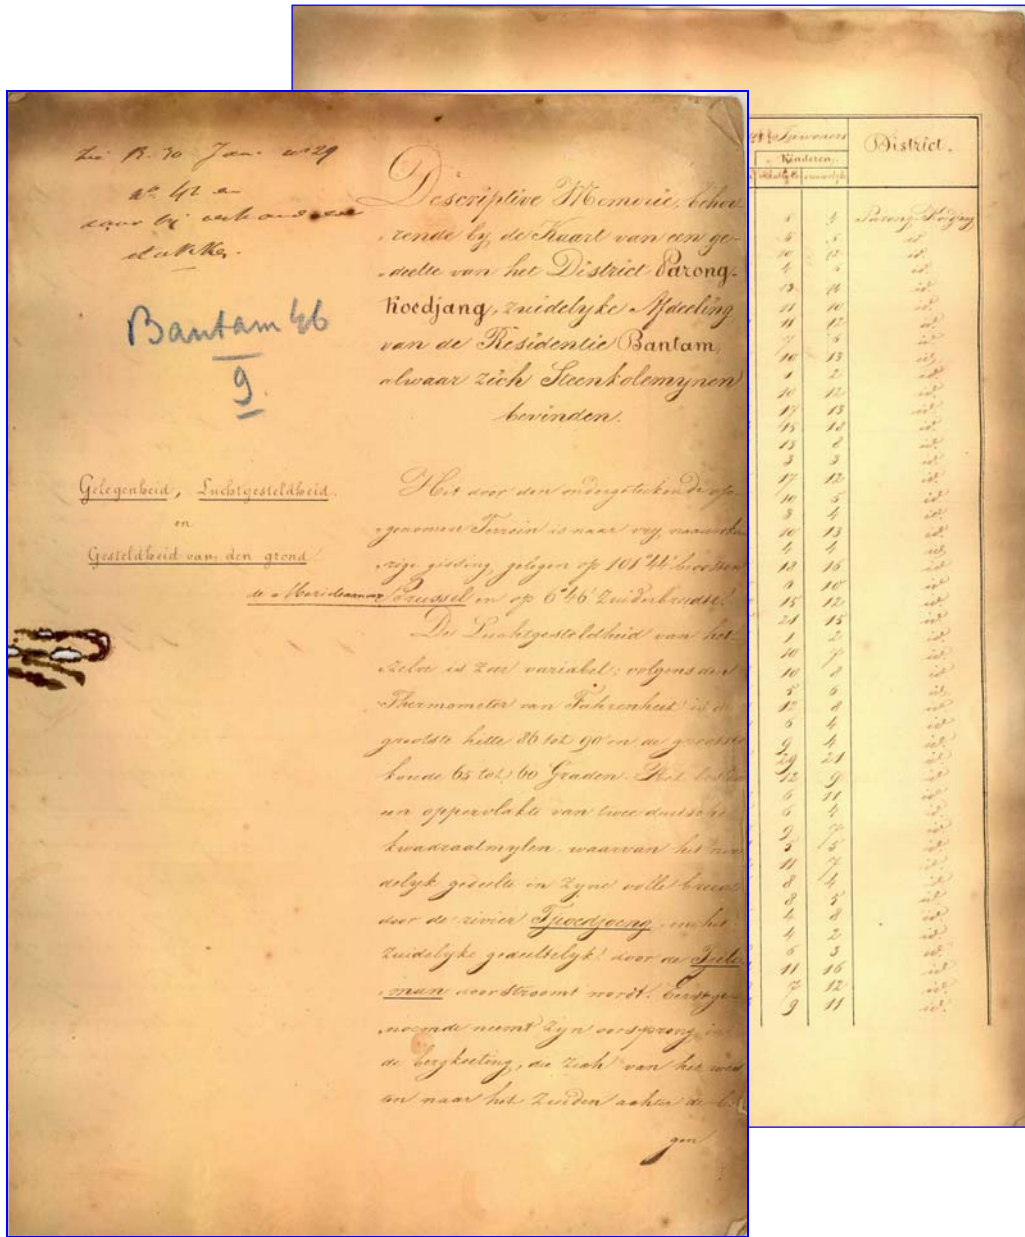 Zie B. 30 Jan. n° 29
n° 42 en
daar bij
stukken.
Bantam 46
9
Descriptive Memorie, behoo-
rende by de Kaart van een ge-
deelte van het District Parong-
Koedjang, zuidelyke Afdeeling
van de Residentie Bantam,
alwaar zich Steenkolemynen
bevinden.
Gelegenheid, Luchtgesteldheid.
en
Gesteldheid van den grond
Het door den ondergeteekende
genomen Terrein is naar vry
rige gissing, gelegen op 101°44'
de Meridiaan van Brussel en op 6°46' Zuiderbreedte.
De Luchtgesteldheid van het
zelve is zeer variabel; volgens den
Thermometer van Fahrenheit is de
grootste hitte 86 tot 90 en de grootste
koude 65 tot 60 Graden. Het
een oppervlakte van twee duitsche
kwadraatmylen, waarvan het
delyk gedeelte in zyne volle
door de rivier Tjioedjoeng, en het
zuidelyke gedeeltelyk door de Tjiele-
man doorstroomt wordt. Eerstge-
noemde neemt zyn oorsprong in
de bergketting, die zich van het
ten naar het Zuiden achter de
gen
Inwoners
Kinderen.
District.
mannelyk vrouwelyk
5 4 Parong Koedjang
5 5 id.
10 12 id.
4 5 id.
13 12 id.
11 10 id.
11 12 id.
7 6 id.
10 13 id.
1 2 id.
10 12 id.
17 13 id.
15 18 id.
13 8 id.
3 3 id.
17 12 id.
10 5 id.
3 4 id.
10 13 id.
4 4 id.
18 16 id.
9 10 id.
15 12 id.
21 15 id.
1 2 id.
10 7 id.
10 8 id.
5 6 id.
12 8 id.
6 4 id.
9 4 id.
29 21 id.
12 9 id.
6 11 id.
6 4 id.
9 7 id.
5 5 id.
11 7 id.
8 4 id.
8 5 id.
4 8 id.
4 2 id.
6 3 id.
11 16 id.
7 12 id.
9 11 id.